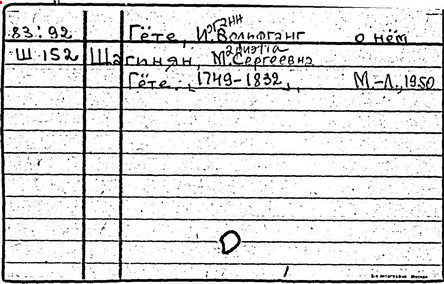 83:92 Гёте, Иоганн Вольфганг о нём
Ш 152 Шагинян, Мариэтта Сергеевна
Гёте. 1749-1832, М.-Л., 1950